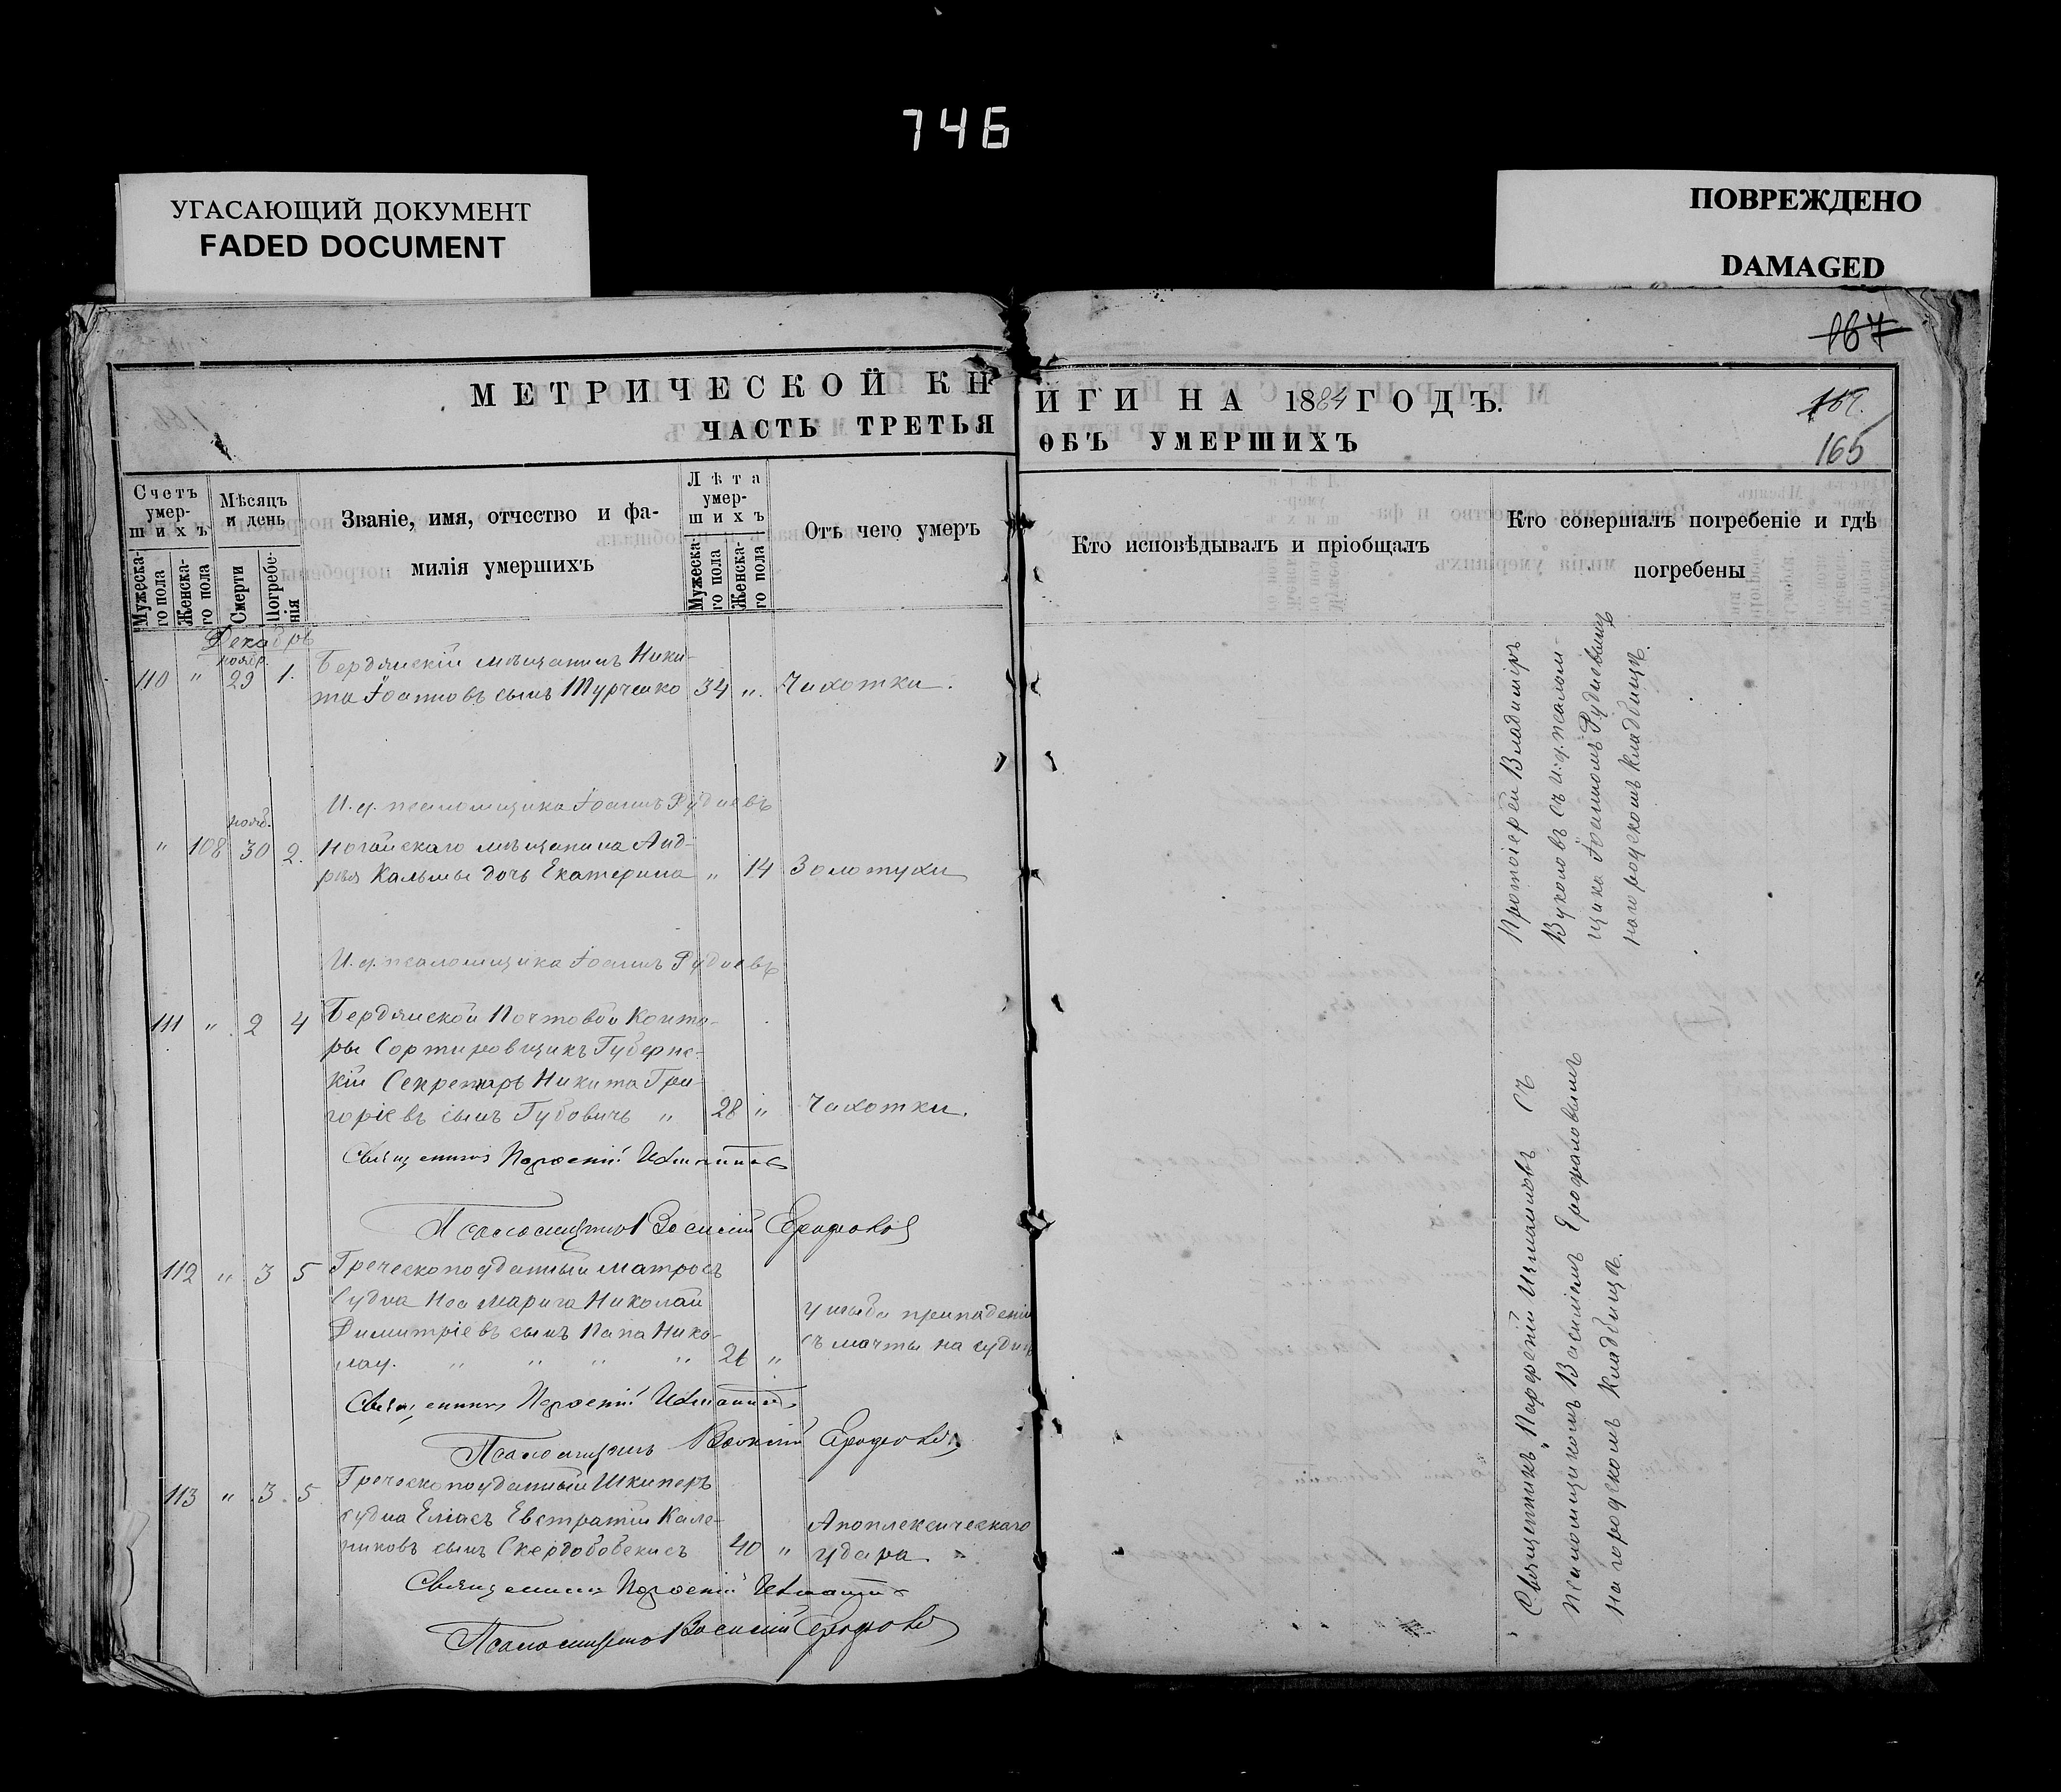 746
УГАСАЮЩИЙ ДОКУМЕНТ
FADED DOCUMENT
ПОВРЕЖДЕНО
DAMAGED
167
МЕТРИЧЕСКОЙ КНИГИ НА 1884 ГОДЪ.
167.
ЧАСТЬ ТРЕТЬЯ ОБЪ УМЕРШИХЪ
165
Счетъ умер-
шихъ
Мужеска-
го пола
Женска-
го пола
Мѣсяцъ
и день
Смерти
Погребе-
нія
Званіе, имя, отчество и фа-
милія умершихъ
Лѣта
умер-
шихъ
Мужеска-
го пола
Женска-
го пола
Отъ чего умеръ
Кто исповѣдывалъ и пріобщалъ
Кто совершалъ погребеніе и гдѣ
погребены
Декабрь
нояб.
110 " 29 1. Бердянскій мѣщанинъ Ники-
та Іоанновъ сынъ Турченко 34 ". Чахотки.
И. д. псаломщика Іоаннъ Рудневъ
нояб.
" 108 30 2. Ногайскаго мѣщанина Анд-
рея Кальмы дочь Екатерина " 14 Золотухи
И. д. псаломщика Іоаннъ Рудневъ
111 " 2 4 Бердянской Почтовой Конто-
ры Сортировщикъ Губернс-
кій Секретарь Никита Гри-
горіевъ сынъ Губовичъ " 28 " Чахотки.
Священникъ Парѳеній
Псаломщикъ Василій
112 " 3 5 Греческоподданный матросъ
Судна Николай
Димитріевъ сынъ Папа Нико-
лау. " " " " 21 "
ушиба при падении
съ мачты на судно
Священникъ Парѳеній
Псаломщикъ Василій
113 " 3. 5 Греческоподданный Шкиперъ
судна Еліасъ Евстратій Кале-
никовъ сынъ 40 "
Апоплексическаго
удара
Священникъ Парѳеній
Псаломщикъ Василій
Протоіерей Владиміръ
Вуколовъ съ и. д. псалом-
щика Іоанномъ Рудневымъ
на городскомъ кладбищѣ.
Священникъ Парѳеній съ
псаломщикомъ Василіемъ
на городскомъ кладбищѣ.